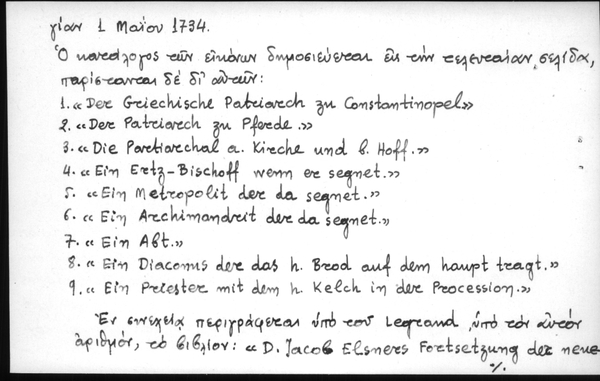 γίαν 1 Μαΐου 1734.
Ὁ κατάλογος τῶν εἰκόνων δημοσιεύεται εἰς τὴν τελευταίαν σελίδα,
παρίστανται δὲ δι' αὐτῶν:
1. «Der Griechische Patriarch zu Constantinopel»
2. «Der Patriarch zu Pferde.»
3. «Die Partiarchal a. Kirche und b. Hoff.»
4. «Ein Ertz-Bischoff wenn er segnet.»
5. «Ein Metropolit der da segnet.»
6. «Ein Archimandrit der da segnet.»
7. «Ein Abt.»
8. «Ein Diaconus der das h. Brod auf dem haupt tragt.»
9. «Ein Priester mit dem h. Kelch in der Procession.»
Ἐν συνεχείᾳ περιγράφεται ὑπὸ τοῦ Legrand, ὑπὸ τὸν αὐτὸν
ἀριθμόν, τὸ βιβλίον: «D. Jacob Elsners Fortsetzung der neue-
%.